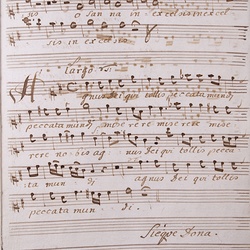 no osanna in excelsis in excel
sis in excelsis
Largo
Agnus dei qui tollis peccata mundi,
peccata mundi, miserere miserere mise
rere nobis ag nus dei qui tollis pecca
ta mun di agnus dei qui tollis
peccata mun di.